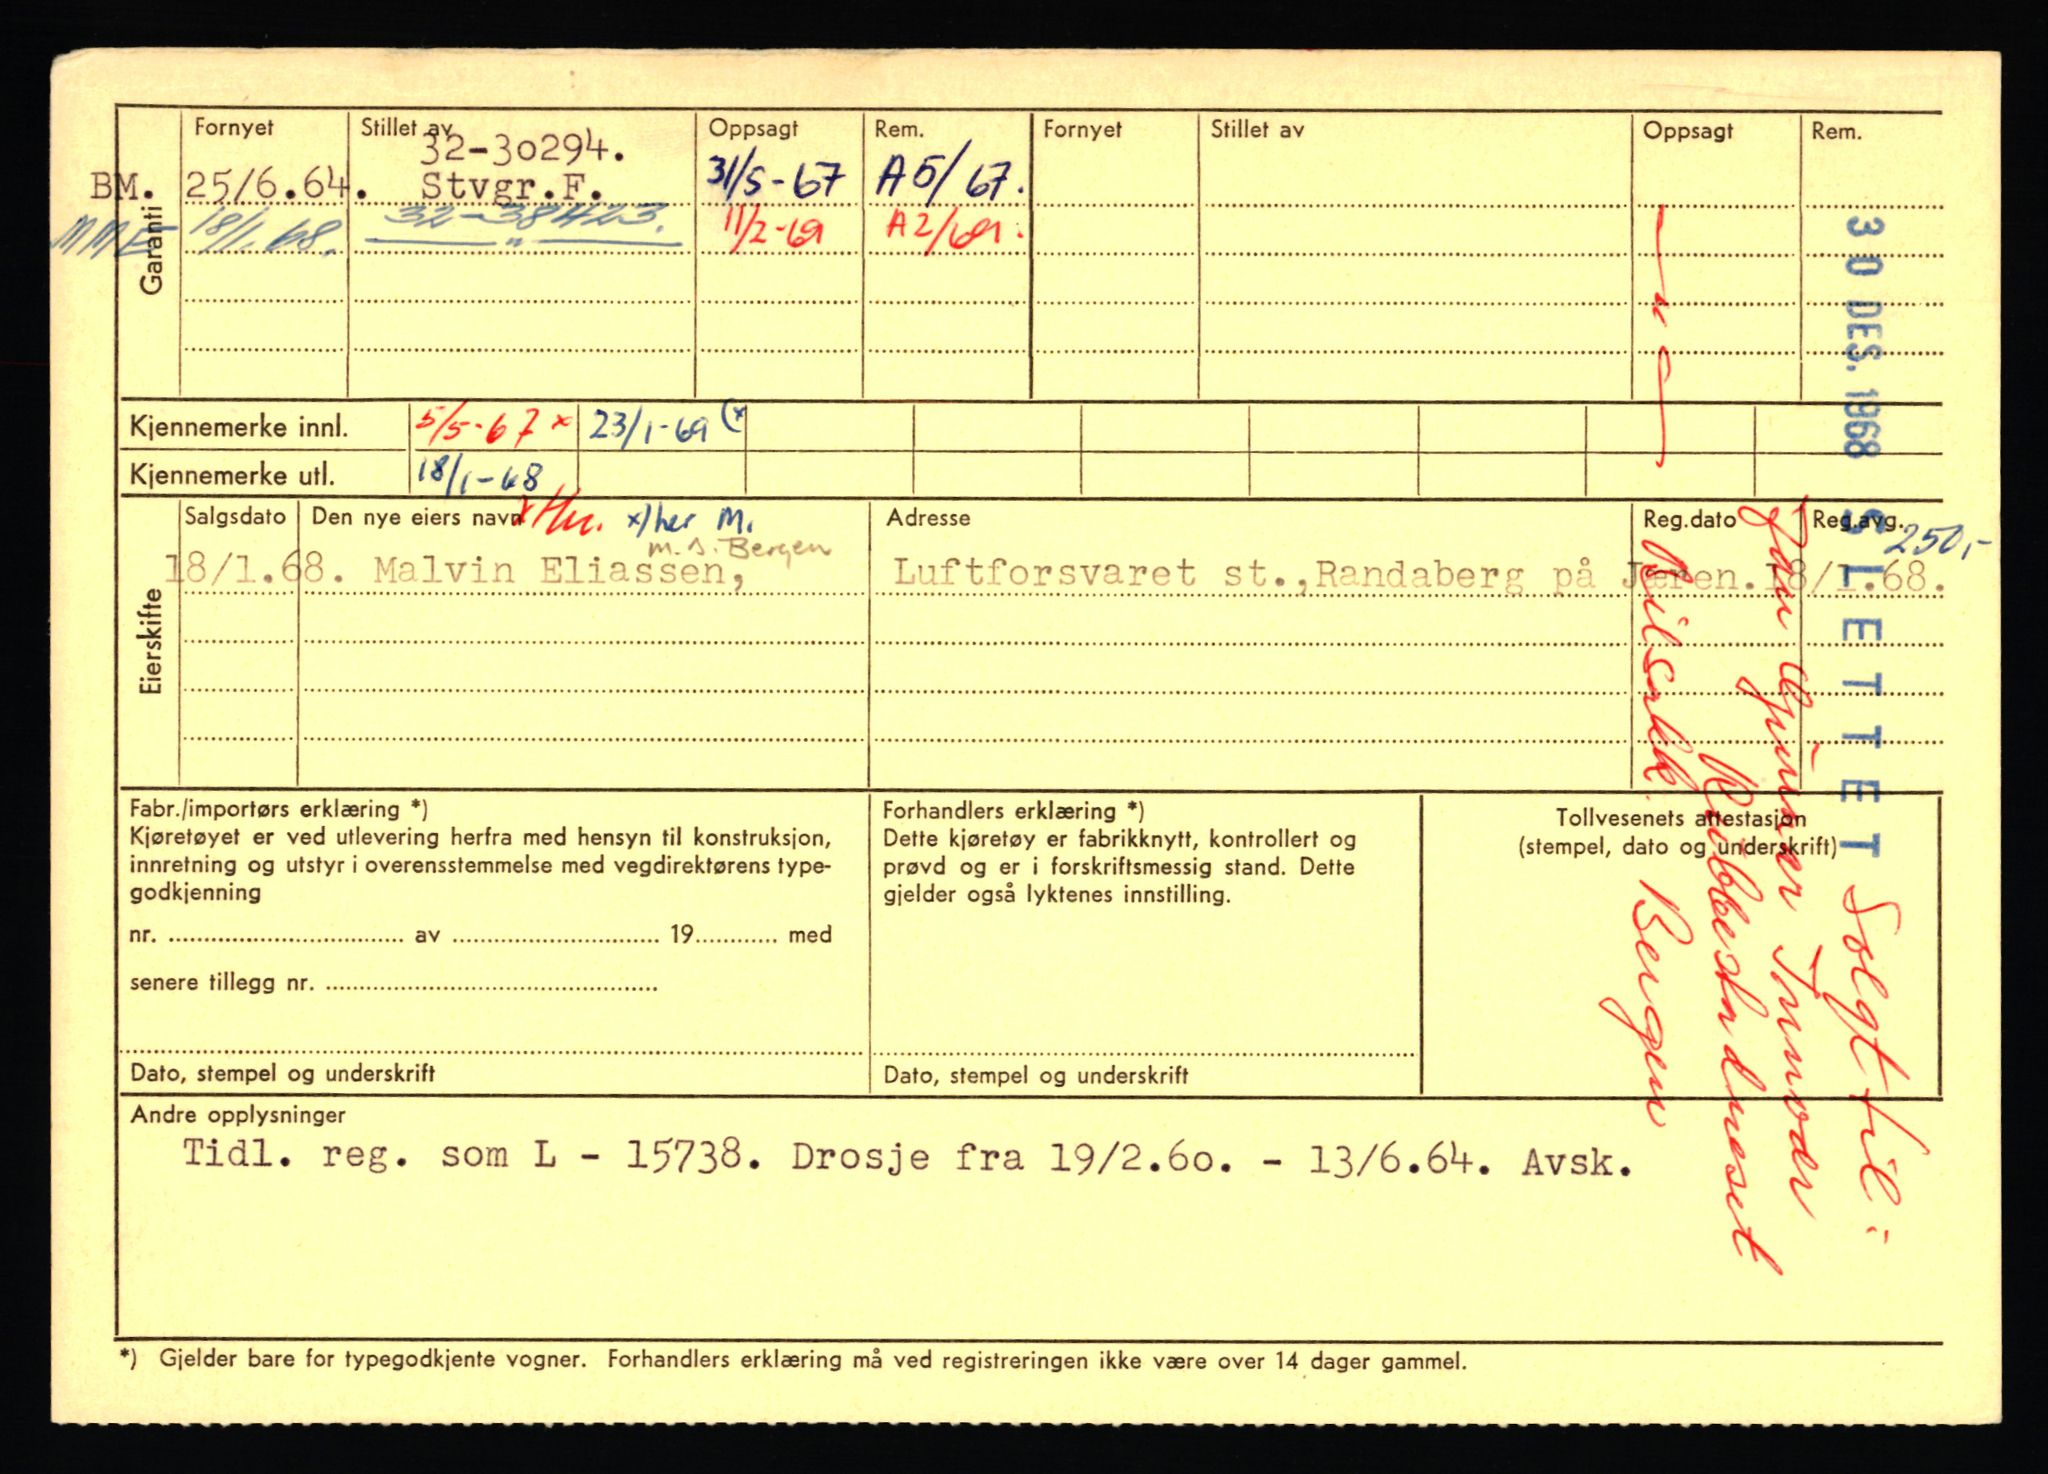 Fornyet Stillet av Oppsagt Rem. Fornyet Stillet av Oppsagt Rem.
32-30294.
BM. 25/6.64. Stvgr.F. 31/5-67 A5/67.
MME 18/1.68. 32-38423. 11/2-69 A2/69.
— " —
Garanti
— " —
Kjennemerke innl. 5/5-67 x 23/1-69 (x
Kjennemerke utl. 18/1-68
Salgsdato Den nye eiers navn x/Hu. x/her M. Adresse Reg.dato Reg.avg.
m.s. Bergen 250,-
18/1.68. Malvin Eliassen, Luftforsvaret st.,Randaberg på Jæren. 18/1.68.
Eierskifte
30 DES. 1968 SLETTET
Solgt til:
Jan Gunnar Tornodr
Kråbbestadneset
Bilsakk. Bergen
Fabr./importørs erklæring *)
Kjøretøyet er ved utlevering herfra med hensyn til konstruksjon,
innretning og utstyr i overensstemmelse med vegdirektørens type-
godkjenning
nr. .......... av .......... 19.......... med
senere tillegg nr. ..........
Dato, stempel og underskrift
Forhandlers erklæring *)
Dette kjøretøy er fabrikknytt, kontrollert og
prøvd og er i forskriftsmessig stand. Dette
gjelder også lyktenes innstilling.
Dato, stempel og underskrift
Tollvesenets attestasjon
(stempel, dato og underskrift)
Andre opplysninger
Tidl. reg. som L - 15738. Drosje fra 19/2.60. - 13/6.64. Avsk.
*) Gjelder bare for typegodkjente vogner. Forhandlers erklæring må ved registreringen ikke være over 14 dager gammel.